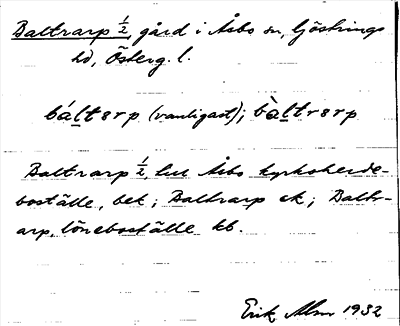 Baltrarp ½, gård i Åsbo sn, Göstrings
hd, Österg. l.
báltərp (vanligast); bàltrərp
Baltrarp ½ lut Åsbo kyrkoherde-
boställe, bek; Baltrarp ek; Baltr-
arp, löneboställe kb.
Erik Alm 1932